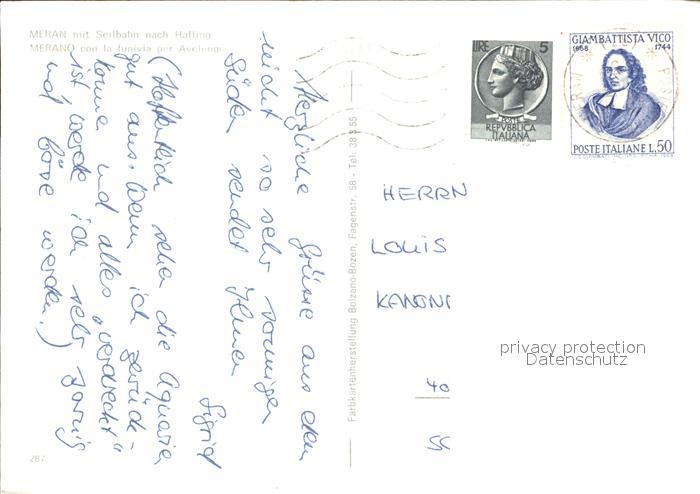 MERAN mit Seilbahn nach Hafling
MERANO con la funivia per Avelengo
Herzliche Grüsse aus dem
nicht so sehr sonnigen
Süden sendet Ihnen
Sigrid
(Hoffentlich sehen die Aquarien
gut aus. Wenn ich zurück-
komme und alles "verdreckt"
ist werde ich sehr zornig
und böse werden.)
287
Farbkartenherstellung Bolzano-Bozen, Fagenstr. 58 - Tel. 38 3 55
LIRE 5
POSTE
REPVBBLICA
ITALIANA
GIAMBATTISTA VICO
1668 1744
POSTE ITALIANE L.50
HERRN
LOUIS
40
privacy protection
Datenschutz